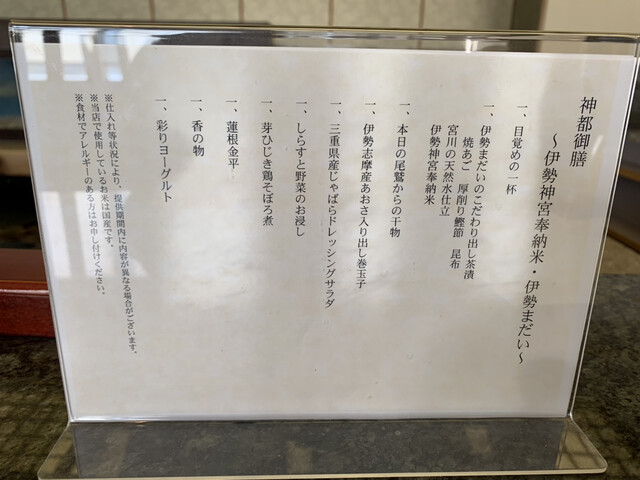 神都御膳
～伊勢神宮奉納米・伊勢まだい～
一、目覚めの一杯
一、伊勢まだいのこだわり出し茶漬
焼あご　厚削り鰹節　昆布
宮川の天然水仕立
伊勢神宮奉納米
一、本日の尾鷲からの干物
一、伊勢志摩産あおさ入り出し巻玉子
一、三重県産じゃばらドレッシングサラダ
一、しらすと野菜のお浸し
一、芽ひじき鶏そぼろ煮
一、蓮根金平
一、香の物
一、彩りヨーグルト
※仕入れ等状況により、提供期間内に内容が異なる場合がございます。
※当店で使用しているお米は国産です。
※食材でアレルギーのある方はお申し付けください。